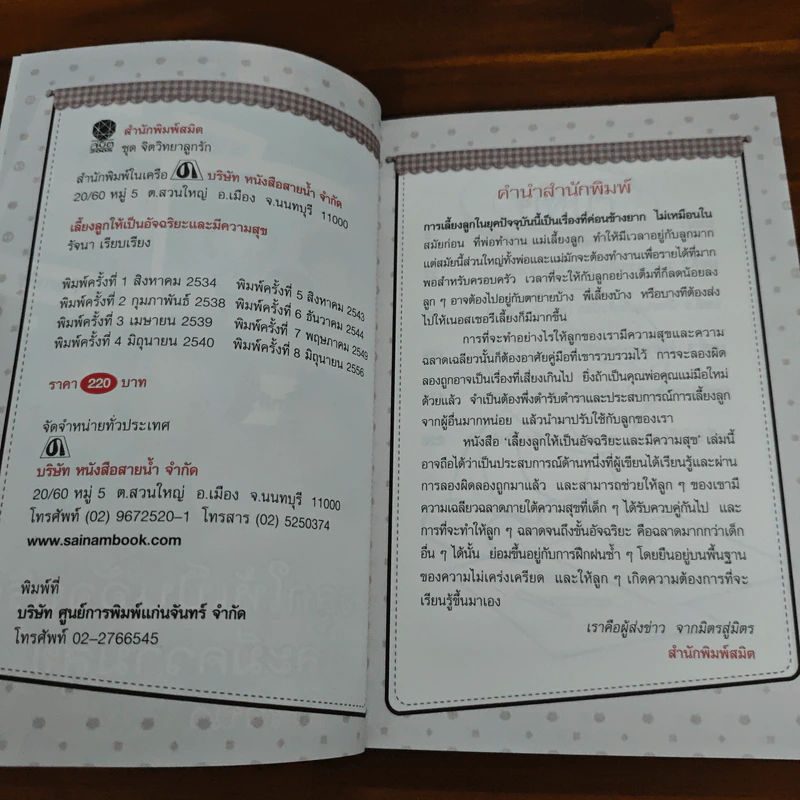 สมิต
สำนักพิมพ์สมิต
ชุด จิตวิทยาลูกรัก
สำนักพิมพ์ในเครือ บริษัท หนังสือสายน้ำ จำกัด
20/60 หมู่ 5 ต.สวนใหญ่ อ.เมือง จ.นนทบุรี 11000
เลี้ยงลูกให้เป็นอัจฉริยะและมีความสุข
รัจนา เรียบเรียง
พิมพ์ครั้งที่ 1 สิงหาคม 2534
พิมพ์ครั้งที่ 2 กุมภาพันธ์ 2538
พิมพ์ครั้งที่ 3 เมษายน 2539
พิมพ์ครั้งที่ 4 มิถุนายน 2540
พิมพ์ครั้งที่ 5 สิงหาคม 2543
พิมพ์ครั้งที่ 6 ธันวาคม 2544
พิมพ์ครั้งที่ 7 พฤษภาคม 2549
พิมพ์ครั้งที่ 8 มิถุนายน 2556
ราคา 220 บาท
จัดจำหน่ายทั่วประเทศ
บริษัท หนังสือสายน้ำ จำกัด
20/60 หมู่ 5 ต.สวนใหญ่ อ.เมือง จ.นนทบุรี 11000
โทรศัพท์ (02) 9672520–1 โทรสาร (02) 5250374
www.sainambook.com
พิมพ์ที่
บริษัท ศูนย์การพิมพ์แก่นจันทร์ จำกัด
โทรศัพท์ 02–2766545
คำนำสำนักพิมพ์
การเลี้ยงลูกในยุคปัจจุบันนี้เป็นเรื่องที่ค่อนข้างยาก ไม่เหมือนใน
สมัยก่อน ที่พ่อทำงาน แม่เลี้ยงลูก ทำให้มีเวลาอยู่กับลูกมาก
แต่สมัยนี้ส่วนใหญ่ทั้งพ่อและแม่มักจะต้องทำงานเพื่อรายได้ที่มาก
พอสำหรับครอบครัว เวลาที่จะให้กับลูกอย่างเต็มที่ก็ลดน้อยลง
ลูก ๆ อาจต้องไปอยู่กับตายายบ้าง พี่เลี้ยงบ้าง หรือบางทีต้องส่ง
ไปให้เนอสเซอรี่เลี้ยงก็มีมากขึ้น
การที่จะทำอย่างไรให้ลูกของเรามีความสุขและความ
ฉลาดเฉลียวนั้นก็ต้องอาศัยคู่มือที่เขารวบรวมไว้ การจะลองผิด
ลองถูกอาจเป็นเรื่องที่เสี่ยงเกินไป ยิ่งถ้าเป็นคุณพ่อคุณแม่มือใหม่
ด้วยแล้ว จำเป็นต้องพึ่งตำรับตำราและประสบการณ์การเลี้ยงลูก
จากผู้อื่นมากหน่อย แล้วนำมาปรับใช้กับลูกของเรา
หนังสือ ‘เลี้ยงลูกให้เป็นอัจฉริยะและมีความสุข’ เล่มนี้
อาจถือได้ว่าเป็นประสบการณ์ด้านหนึ่งที่ผู้เขียนได้เรียนรู้และผ่าน
การลองผิดลองถูกมาแล้ว และสามารถช่วยให้ลูก ๆ ของเขามี
ความเฉลียวฉลาดภายใต้ความสุขที่เด็ก ๆ ได้รับควบคู่กันไป และ
การที่จะทำให้ลูก ๆ ฉลาดจนถึงขั้นอัจฉริยะ คือฉลาดมากกว่าเด็ก
อื่น ๆ ได้นั้น ย่อมขึ้นอยู่กับการฝึกฝนซ้ำ ๆ โดยยืนอยู่บนพื้นฐาน
ของความไม่เคร่งเครียด และให้ลูก ๆ เกิดความต้องการที่จะ
เรียนรู้ขึ้นมาเอง
เราคือผู้ส่งข่าว จากมิตรสู่มิตร
สำนักพิมพ์สมิต